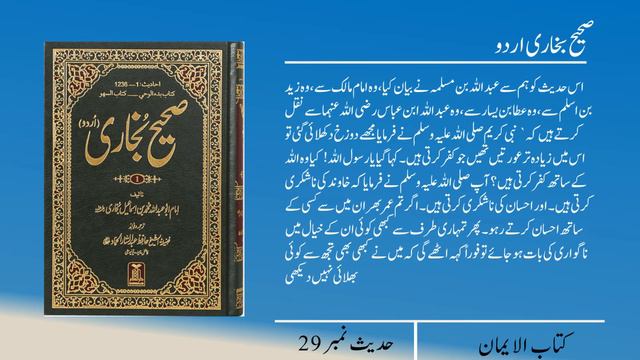 صحیح بخاری اردو
اس حدیث کو ہم سے عبداللہ بن مسلمہ نے بیان کیا، وہ امام مالک سے، وہ زید
بن اسلم سے، وہ عطا بن یسار سے، وہ عبداللہ ابن عباس رضی اللہ عنہما سے نقل
کرتے ہیں کہ ` نبی کریم صلی اللہ علیہ وسلم نے فرمایا مجھے دوزخ دکھلائی گئی تو
اس میں زیادہ تر عورتیں تھیں جو کفر کرتی ہیں۔ کہا گیا یا رسول اللہ! کیا وہ اللہ
کے ساتھ کفر کرتی ہیں؟ آپ صلی اللہ علیہ وسلم نے فرمایا کہ خاوند کی ناشکری
کرتی ہیں۔ اور احسان کی ناشکری کرتی ہیں۔ اگر تم عمر بھر ان میں سے کسی کے
ساتھ احسان کرتے رہو۔ پھر تمہاری طرف سے کبھی کوئی ان کے خیال میں
ناگواری کی بات ہو جائے تو فوراً کہہ اٹھے گی کہ میں نے کبھی بھی تجھ سے کوئی
بھلائی نہیں دیکھی
کتاب الایمان
حدیث نمبر 29
احادیث: 1 - 1236
کتاب بدء الوحي - کتاب السهو
صحیح بخاری
(اُردو)
1
تالیف
امام ابو عبداللہ محمد بن اسماعیل بخاری
دارالسلام